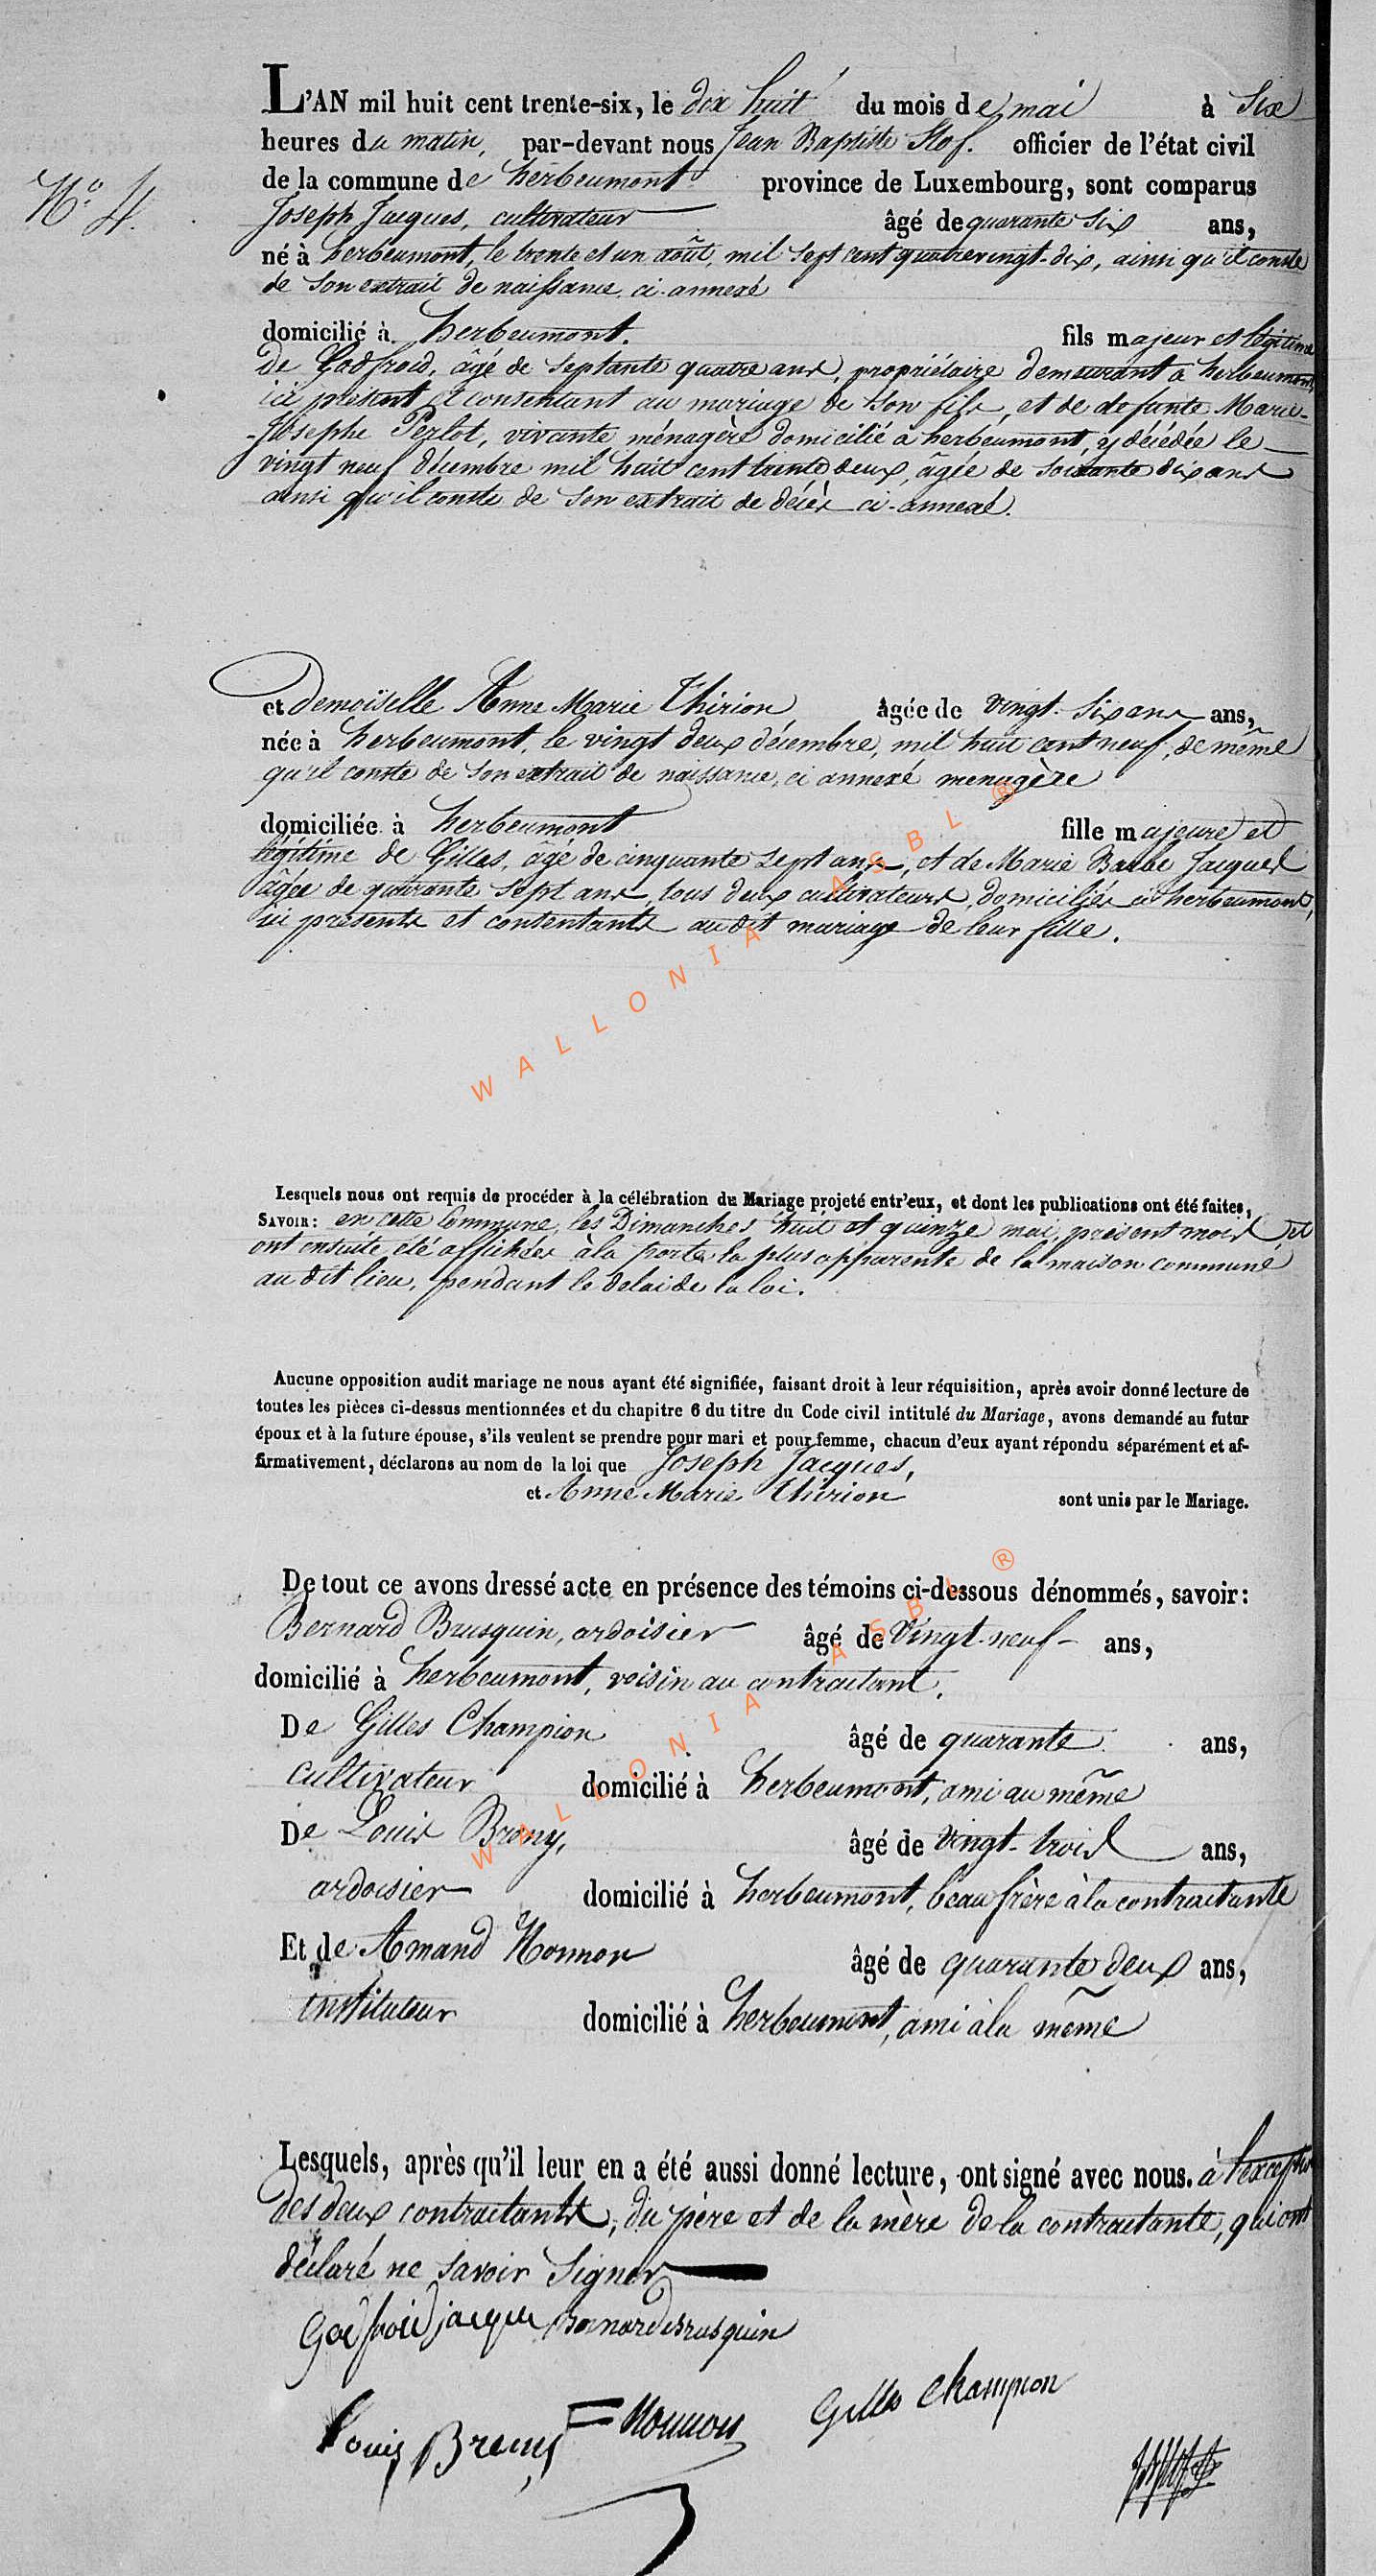 L'AN mil huit cent trente-six, le dix huit du mois de mai à Six
heures du matin, par-devant nous Jean Baptiste Slof. officier de l'état civil
de la commune de herbeumont province de Luxembourg, sont comparus
N° 4.
Joseph Jacques, cultivateur âgé de quarante six ans,
né à herbeumont, le trente et un août, mil sept cent quatrevingt-dix, ainsi qu'il conste
de son extrait de naissance, ci-annexé
domicilié à herbeumont. fils majeur et légitime
de Godfroid, âgé de septante quatre ans, propriétaire demeurant à herbeumont,
ici présent et consentant au mariage de son fils, et de defunte Marie-
-Josephe Perlot, vivante ménagère domicilié à herbeumont, y décédée le
vingt neuf décembre mil huit cent trente deux, âgée de soixante dix ans
ainsi qu'il conste de son extrait de décès ci-annexé.
et Demoiselle Anne Marie Thirion âgée de vingt-six ans ans,
née à herbeumont, le vingt deux décembre, mil huit cent neuf, de même
qu'il conste de son extrait de naissance, ci annexé menagère
domiciliée à herbeumont fille majeure et
légitime de Gilles, âgé de cinquante sept ans, et de Marie Barbe Jacques
âgée de quarante sept ans, tous deux cultivateurs, domiciliés à herbeumont,
ici présents et contentants au dit mariage de leur fille.
WALLONIA ASBL ®
Lesquels nous ont requis de procéder à la célébration du Mariage projeté entr'eux, et dont les publications ont été faites,
SAVOIR: en cette Commune, les Dimanches huit et quinze mai, présent mois, et
ont ensuite été affichées à la porte la plus apparente de la maison commune
au dit lieu, pendant le delai de la loi.
Aucune opposition audit mariage ne nous ayant été signifiée, faisant droit à leur réquisition, après avoir donné lecture de
toutes les pièces ci-dessus mentionnées et du chapitre 6 du titre du Code civil intitulé du Mariage, avons demandé au futur
époux et à la future épouse, s'ils veulent se prendre pour mari et pour femme, chacun d'eux ayant répondu séparément et af-
firmativement, déclarons au nom de la loi que Joseph Jacques,
et Anne Marie Thirion sont unis par le Mariage.
De tout ce avons dressé acte en présence des témoins ci-dessous dénommés, savoir:
Bernard Brusquin, ardoisier âgé de vingt-neuf- ans,
domicilié à herbeumont, voisin au contractant.
De Gilles Champion âgé de quarante ans,
cultivateur domicilié à herbeumont, ami au même
De Louis Bremy, âgé de vingt-trois ans,
ardoisier domicilié à herbeumont, beau frère à la contractante
Et de Amand Nonnon âgé de quarante deux ans,
instituteur domicilié à herbeumont, ami à la même
WALLONIA ASBL ®
Lesquels, après qu'il leur en a été aussi donné lecture, ont signé avec nous. à l'exception
des deux contractants, du père et de la mère de la contractante, qui ont
déclaré ne savoir signer
Godfroid jacque Bernard brusquin
Louis Bremy Nonnon Gilles Champion